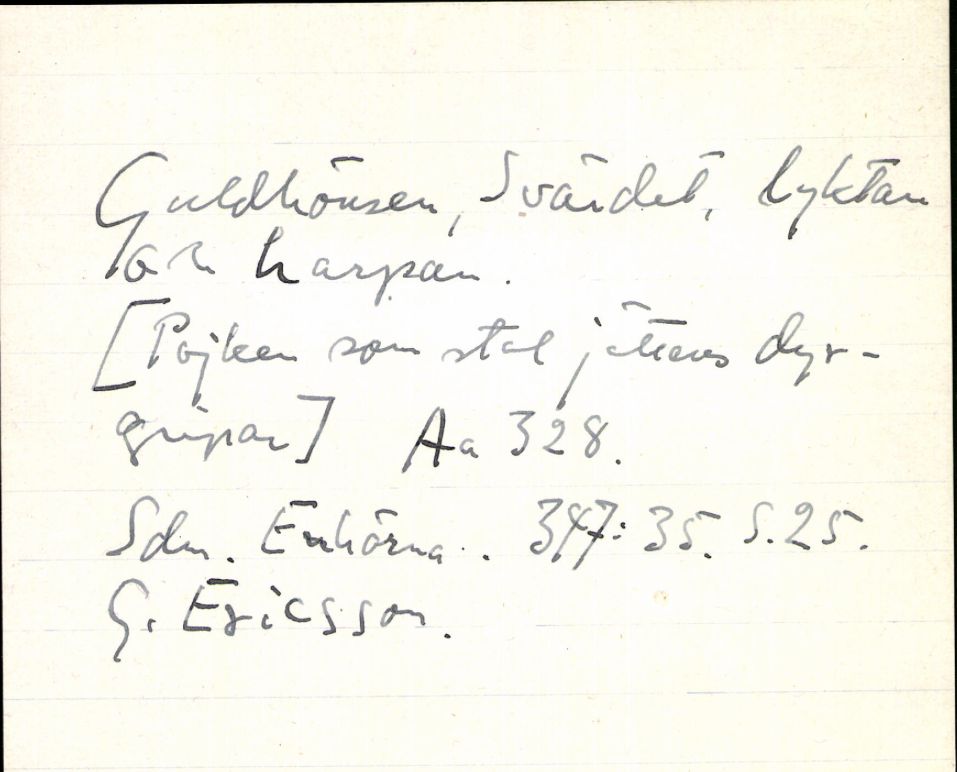 Guldhönsen, Svärdet, Lyktan
och harpan.
[Pojken som stal jättens dyr-
gripar] Aa 328.
Sdm. Enhörna. 347:35. S.25.
G. Ericsson.